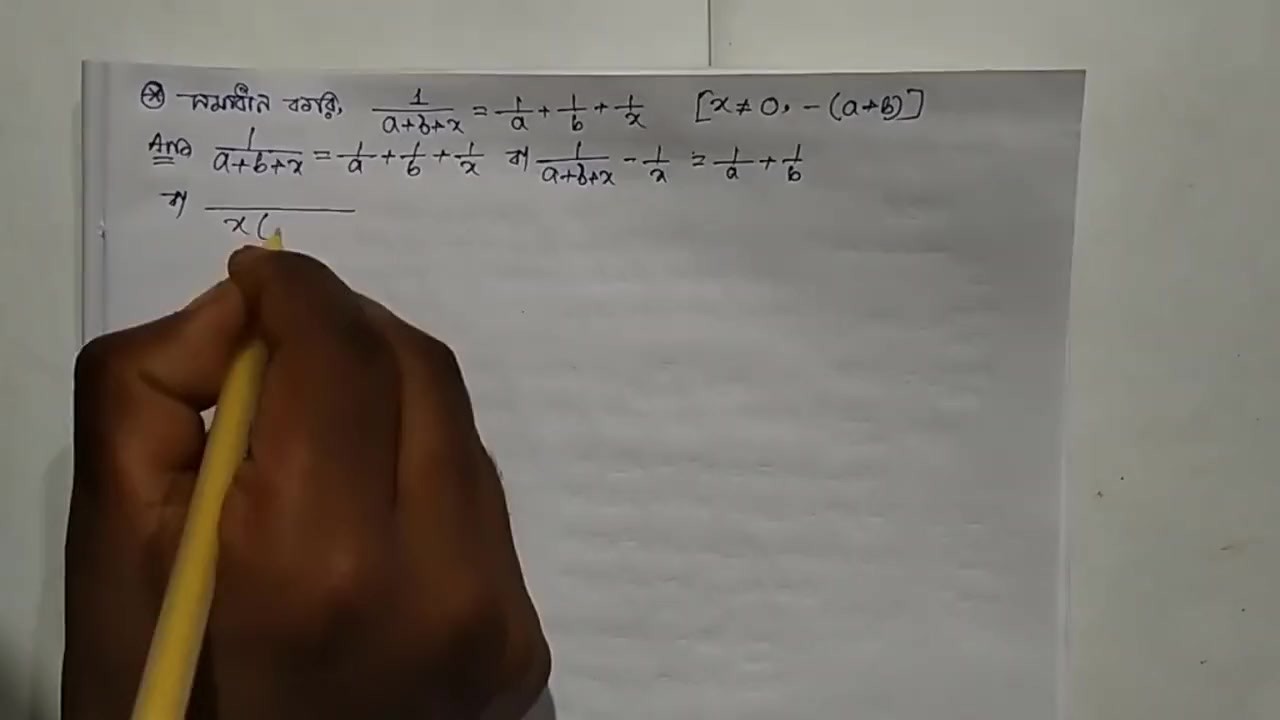 ⊛ সমাধান করি, 1/(a+b+x) = 1/a + 1/b + 1/x [x ≠ 0, -(a+b)]
Ans 1/(a+b+x) = 1/a + 1/b + 1/x বা 1/(a+b+x) - 1/x = 1/a + 1/b
বা x(